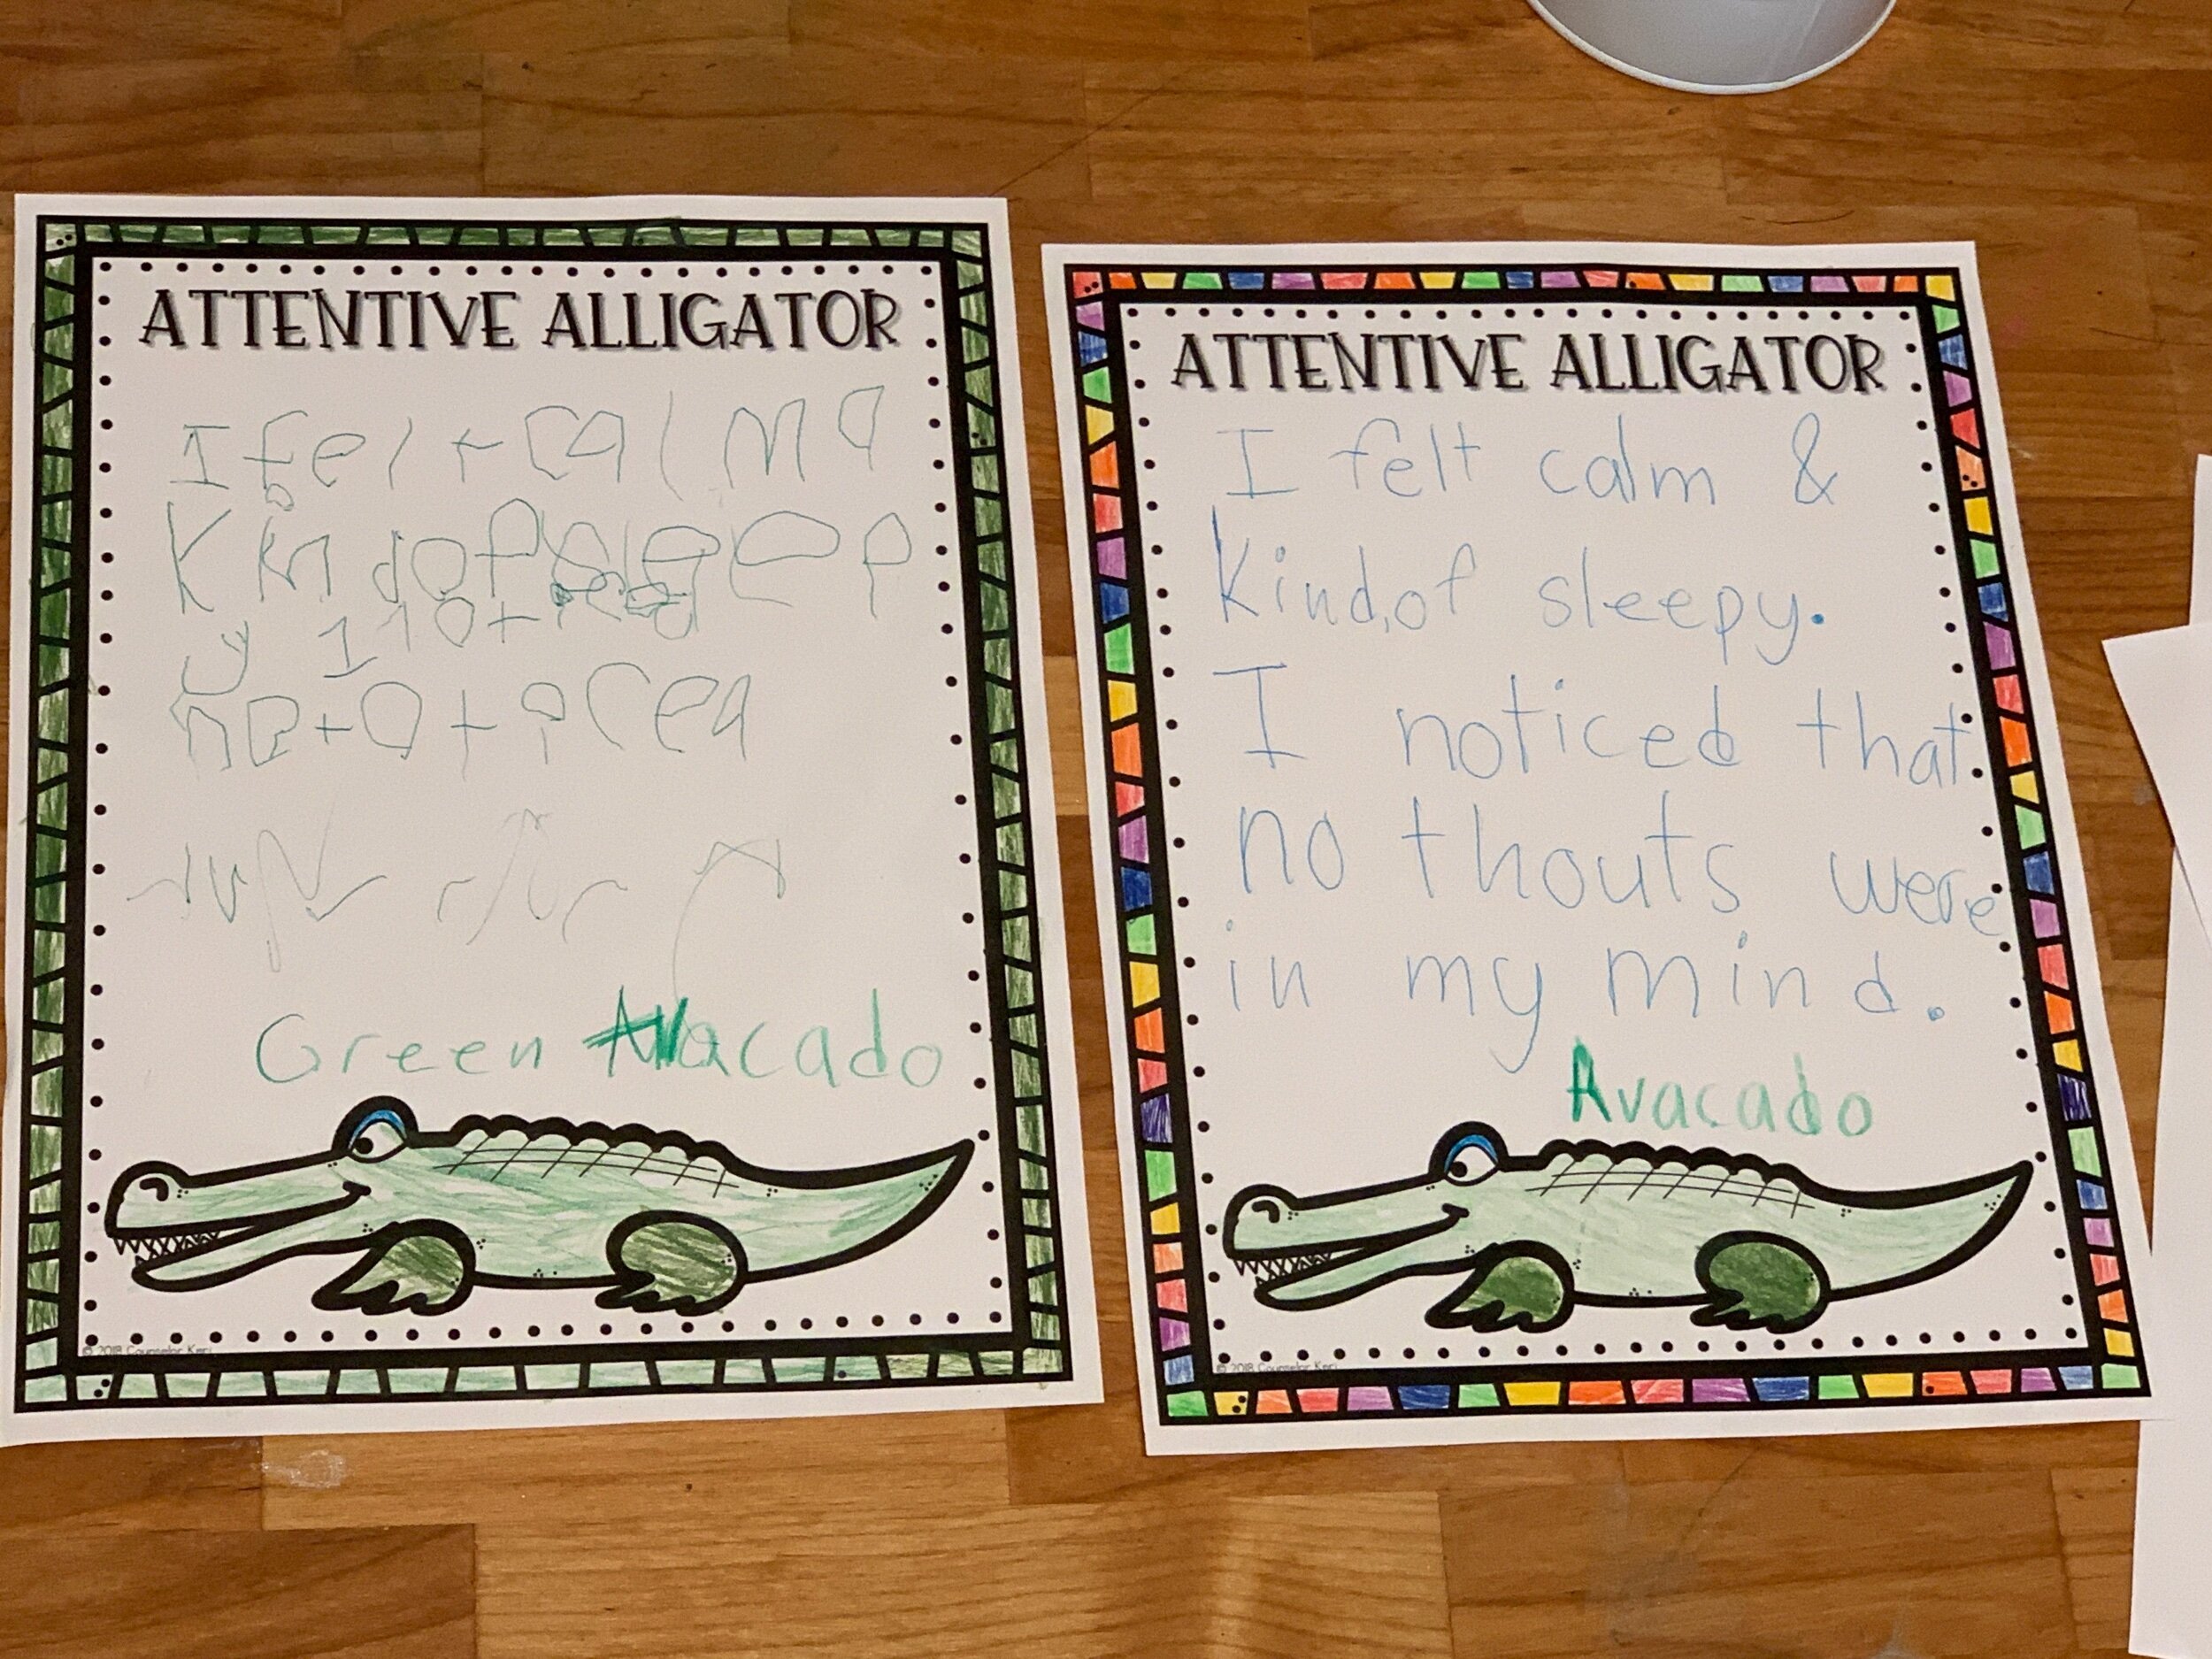 ATTENTIVE ALLIGATOR
I felt calm a
K kind of sleep
y I
Green Avacado
© 2018 Counselor Keri
ATTENTIVE ALLIGATOR
I felt calm &
Kind, of sleepy.
I noticed that
no thouts were
in my mind.
Avacado
© 2018 Counselor Keri